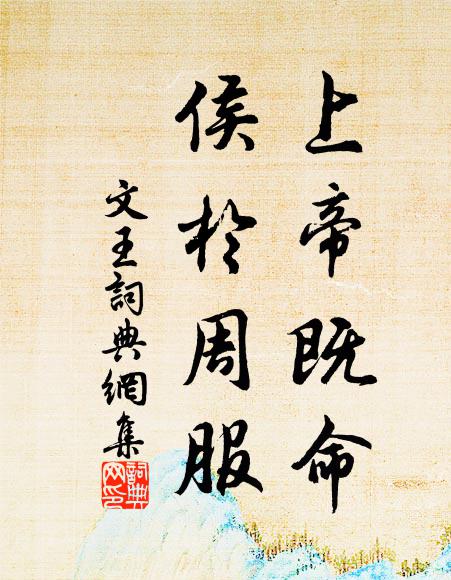 上帝既命
侯於周服
文王詞典網集
詞典網印